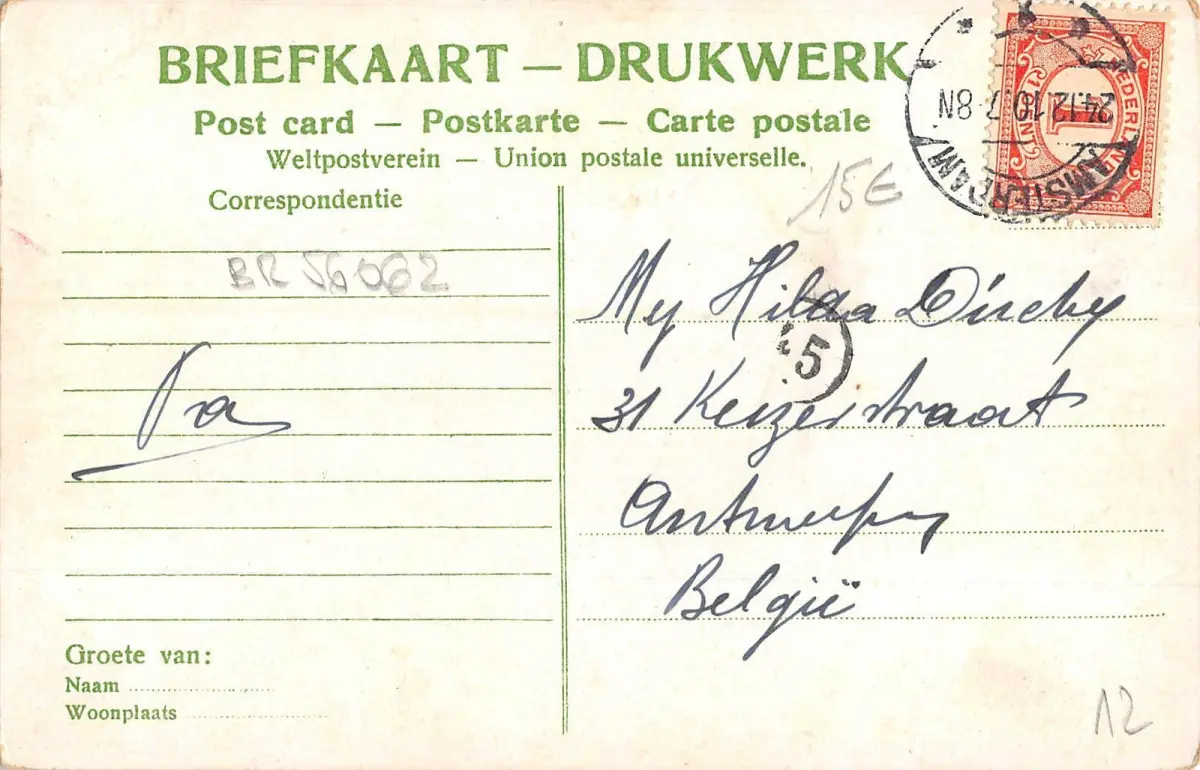 BRIEFKAART — DRUKWERK
Post card — Postkarte — Carte postale
Weltpostverein — Union postale universelle.
Correspondentie
15€
AMSTERDAM
24.12.10 7-8N
NEDERLAND
1 CENT
1
BR 56062
My Hilda
5
31 Keizerstraat
Pa
Antwerpen
België
Groete van:
Naam
Woonplaats
12